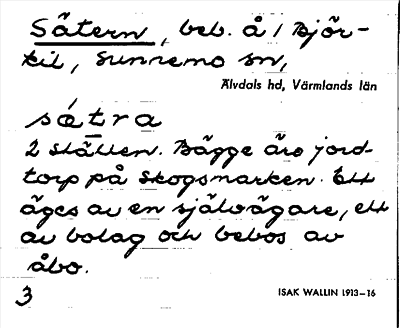 Sätern, beb. å / Björ-
kil, Sunnemo sn,
Älvdals hd, Värmlands län
sætra
2 ställen. Bägge äro jord-
torp på skogsmarken. Ett
äges av en självägare, ett
av bolag och bebos av
åbo.
3
ISAK WALLIN 1913–16